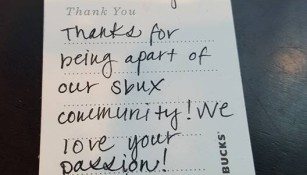 Thank You
Thanks for
being apart of
our sbux
community! We
love your
passion!
BUCKS